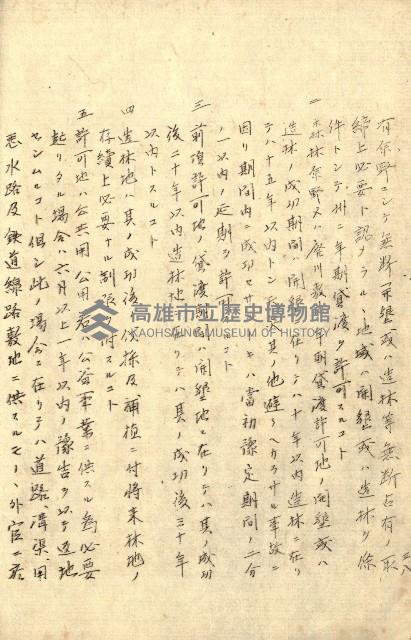 有原野ニシテ無断開墾或ハ造林等無断占有ノ取
締上必要ト認メラル地域ハ開墾或ハ造林ヲ條
件トシテ州ニ年期貸渡ヲ許可スルコト
二 森林原野又ハ 年期貸渡許可地ノ開墾或ハ
造林ノ成功期間ハ開墾ニ在リテハ十年以内造林ニ在リ
テハ十五年以内トシ 其ノ他避クヘカラサル事故ニ
因リ期間内ニ成功セサルトキハ當初豫定期間ノ二分
ノ一以内ノ延期ヲ許可スルコト
三 前項許可地ノ貸渡期間ハ開墾地ニ在リテハ其ノ成功
後二十年以内造林地ニ在リテハ其ノ成功後三十年
以内トスルコト
四 造林地ハ其ノ成功後ノ伐採及補植ニ付将来林地ノ
存續上必要ナル制限ヲ付スルコト
五 許可地ハ公共用、公用若ハ公益事業ニ供スル為必要
起リタル場合ハ六月以上一年以内ノ豫告ヲ以テ返地
センムルコト但シ此ノ場合ニ在リテハ道路、溝渠、用
悪水路及鉄道線路敷地ニ供スルモノノ外官ニ於
高雄市立歷史博物館
KAOHSIUNG MUSEUM OF HISTORY